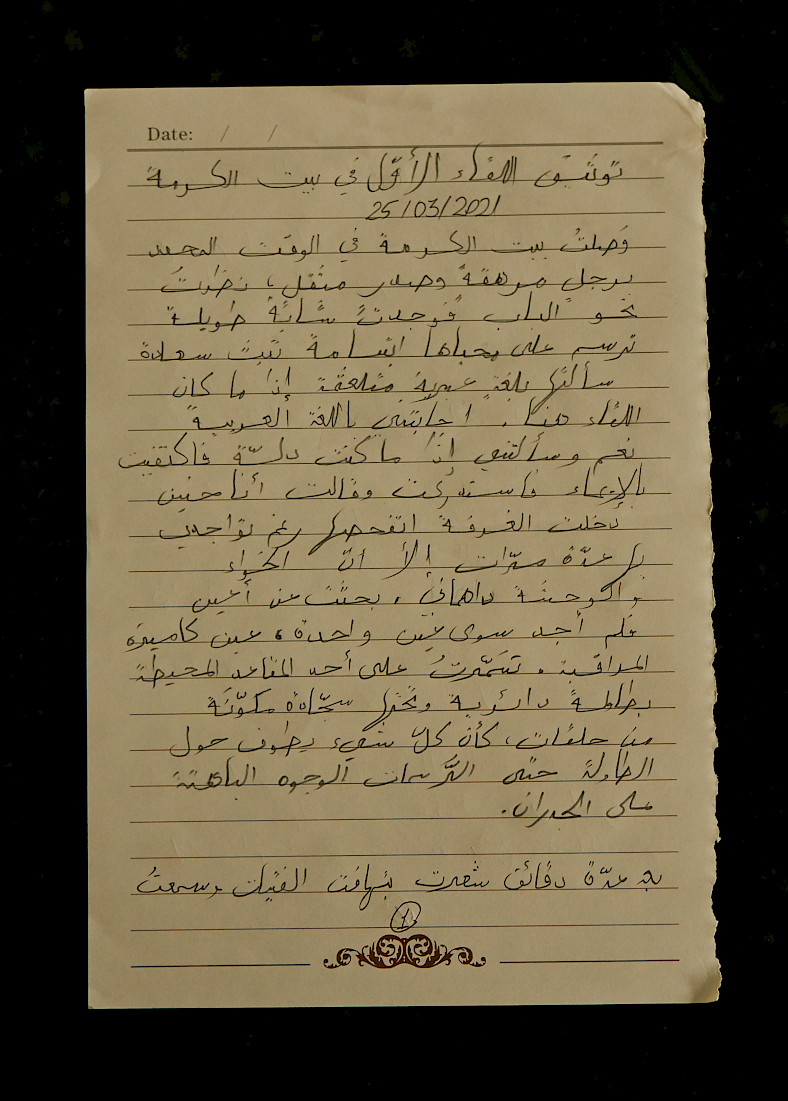 Date: / /
توثيق اللقاء الأوّل في بيت الكرمة
25/03/2021
وَصلتُ بيت الكرمة في الوقت المحدد
برجلٍ مرهقة وصدر مثقل، نظرتُ
نحو الباب فوجدتُ شابّةً طويلة
ترسم على محياها ابتسامة تبث سعادة
سألتُها بلغةٍ عبريةٍ متلعثمة إذا ما كان
اللقاء هنا. اجابتني باللغة العربية
نعم وسألتني إذا ما كنت دالية فاكتفيت
بالإيماء فاستدركت وقالت أنا حنين
دخلت الغرفة اتفحصها رغم تواجدي
بها عدّة مرّات إلّا أنّ الخواء
والوحشة داهماني، بحثتُ عن أعين
فلم أجد سوى عين واحدة، عين كاميرة
المراقبة. تسَمّرتُ على أحد المقاعد المحيطة
بطاولةً دائرية وتحتها سجّادة مكوّنَة
من حلقات، كأن كلّ شيء يطوف حول
الطاولة حتى الرّسمات الوجوه الباهتة
على الجدران.
بعد عدّة دقائق شعرت بتهافت الفتيات وسمعتُ
1